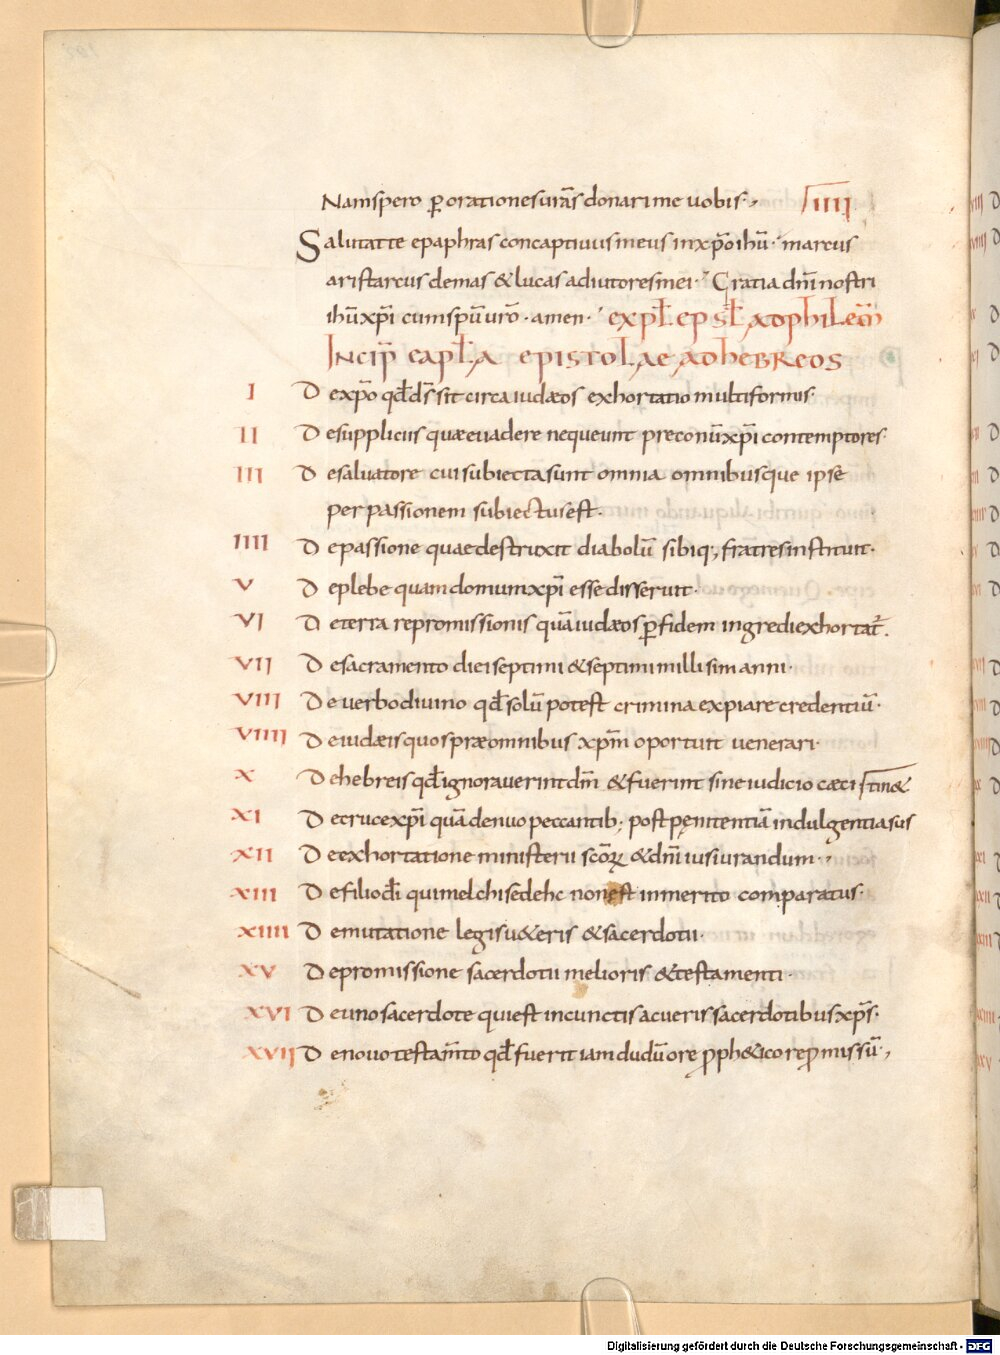 Nam spero ꝑ orationes urās donari me uobis · IIII
Salutat te epaphras concaptiuus meus in xp̄o ihū · marcus
aristarcus demas & lucas adiutores mei · Gratia dn̄i nostri
ihū xp̄i cum sp̄u uro᷃ · amen · expl̄ epsl̄ ad philem̄
Incip̄ capl̄a epistolae ad hebreos
I De xp̄o qđ ds̄ sit circa iudæos exhortatio multiformis ·
II De suppliciis quæ euadere nequeunt preconiū xp̄i contemptores ·
III De saluatore cui subiecta sunt omnia omnibusque ipse
per passionem subiectus est ·
IIII De passione quae destruxit diabolū sibiq; fratres instituit ·
V De plebe quam domum xp̄i esse disseruit ·
VI De terra repromissionis quā iudæos ꝑ fidem ingredi exhortat̄ .
VII De sacramento diei septimi & septimi millisim anni ·
VIII De uerbo diuino qđ solū potest crimina expiare credentiū ·
VIIII De iudæis quos præ omnibus xp̄m oportuit uenerari ·
X De hebreis qđ ignorauerint dm̄ & fuerint sine iudicio cæci
XI De cruce xp̄i quā denuo peccantib; post pęnitentiā indulgentia sus
XII De exhortatione ministerii scōꝝ & dn̄i iusiurandum ·
XIII De filio dī qui melchisedehc non est inmerito comparatus ·
XIIII De mutatione legis u&eris & sacerdotii ·
XV De promissione sacerdotii melioris & testamenti ·
XVI De uno sacerdote qui est in cunctis ac ueris sacerdotibus xp̄s ·
XVII De nouo testam̄to qđ fuerit iamdudū ore ꝓph&ico reꝓmissū ·
Digitalisierung gefördert durch die Deutsche Forschungsgemeinschaft - DFG